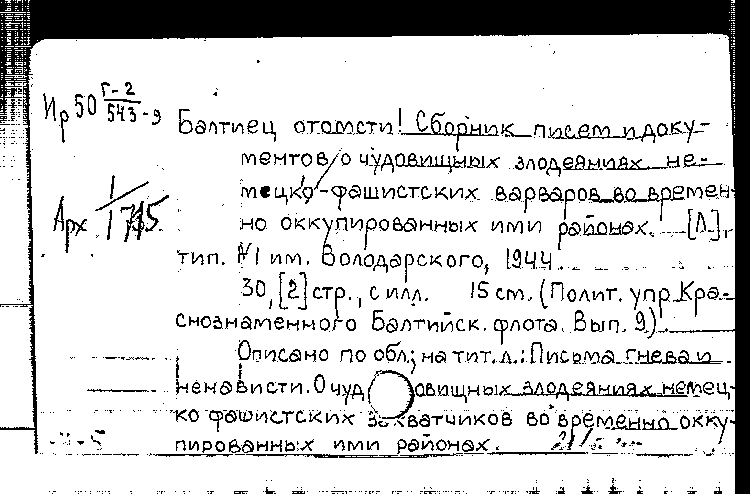 Ир 50 Г-2
543-9
Балтиец отомсти! Сборник писем и доку-
ментов о чудовищных злодеяниях не-
мецко-фашистских варваров во времен-
но оккупированных ими районах. [Л],
Арх 1
тип. №1 им. Володарского, 1944.
30, [2] стр., с илл. 15 см. (Полит. упр. Кра-
снознаменного Балтийск. флота. Вып. 9)
Описано по обл.; на тит. л.: Письма гнева и
ненависти. О чудовищных злодеяниях немец-
ко фашистских захватчиков во временно окку-
пированных ими районах.